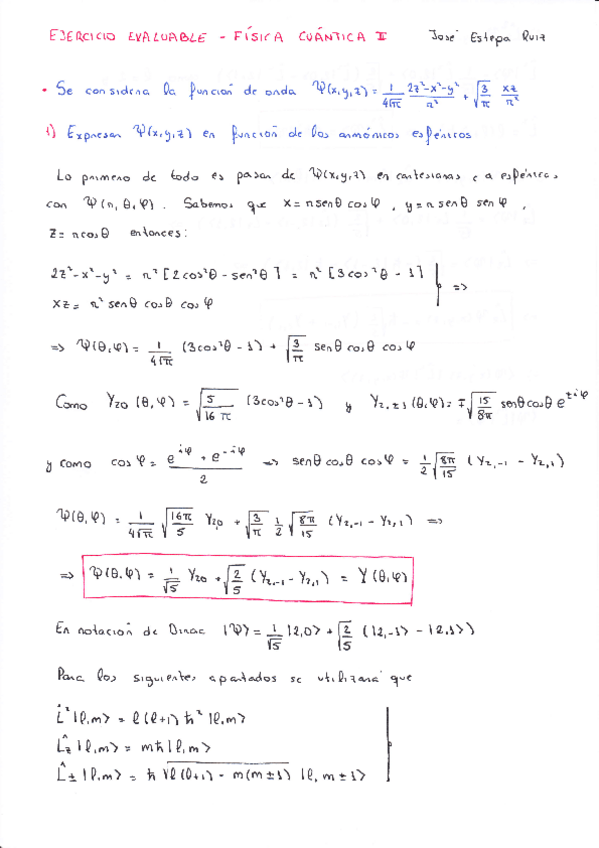 EJERCICIO EVALUABLE - FÍSICA CUÁNTICA II José Estepa Ruiz
• Se considera la función de onda Ψ(x,y,z) = 1/(4√π) (2z²-x²-y²)/r² + √(3/π) xz/r²
1) Expresar Ψ(x,y,z) en función de los armónicos esféricos
Lo primero de todo es pasar de Ψ(x,y,z) en cartesianas a esféricas
con Ψ(r, θ, φ). Sabemos que x = r senθ cosφ, y = r senθ senφ,
z = r cosθ entonces:
2z²-x²-y² = r² [2cos²θ - sen²θ] = r² [3cos²θ - 1]
xz = r² senθ cosθ cosφ =>
=> Ψ(θ,φ) = 1/(4√π) (3cos²θ - 1) + √(3/π) senθ cosθ cosφ
Como Y₂₀(θ,φ) = √(5/16π) (3cos²θ - 1) y Y₂,±₁(θ,φ) = ∓√(15/8π) senθ cosθ e^(±iφ)
y como cosφ = (e^(iφ) + e^(-iφ))/2 => senθ cosθ cosφ = 1/2 √(8π/15) (Y₂,₋₁ - Y₂,₁)
Ψ(θ,φ) = 1/(4√π) √(16π/5) Y₂,₀ + √(3/π) 1/2 √(8π/15) (Y₂,₋₁ - Y₂,₁) =>
=> Ψ(θ,φ) = 1/√5 Y₂₀ + √(2/5) (Y₂,₋₁ - Y₂,₁) = Y(θ,φ)
En notación de Dirac |Ψ> = 1/√5 |2,0> + √(2/5) (|2,-1> - |2,1>)
Para los siguientes apartados se utilizará que
L̂²|l,m> = l(l+1)ħ²|l,m>
L̂z|l,m> = mħ|l,m>
L̂±|l,m> = ħ√(l(l+1) - m(m±1)) |l, m±1>